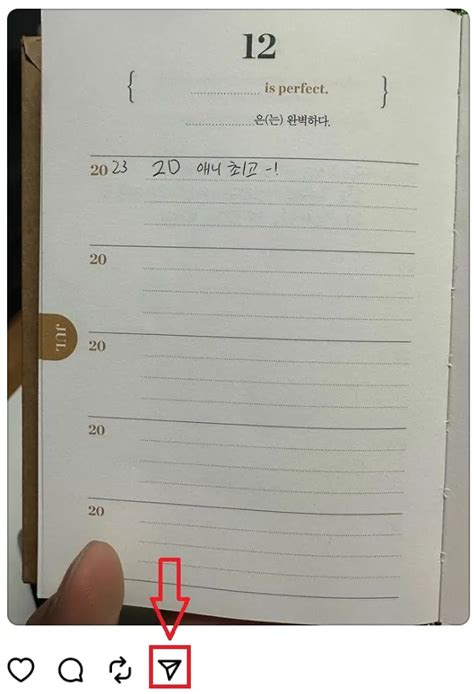 12
{ .................. is perfect. }
..................은(는) 완벽하다.
20 23 2D 애니 최고 ~!
20
20
JUL
20
20